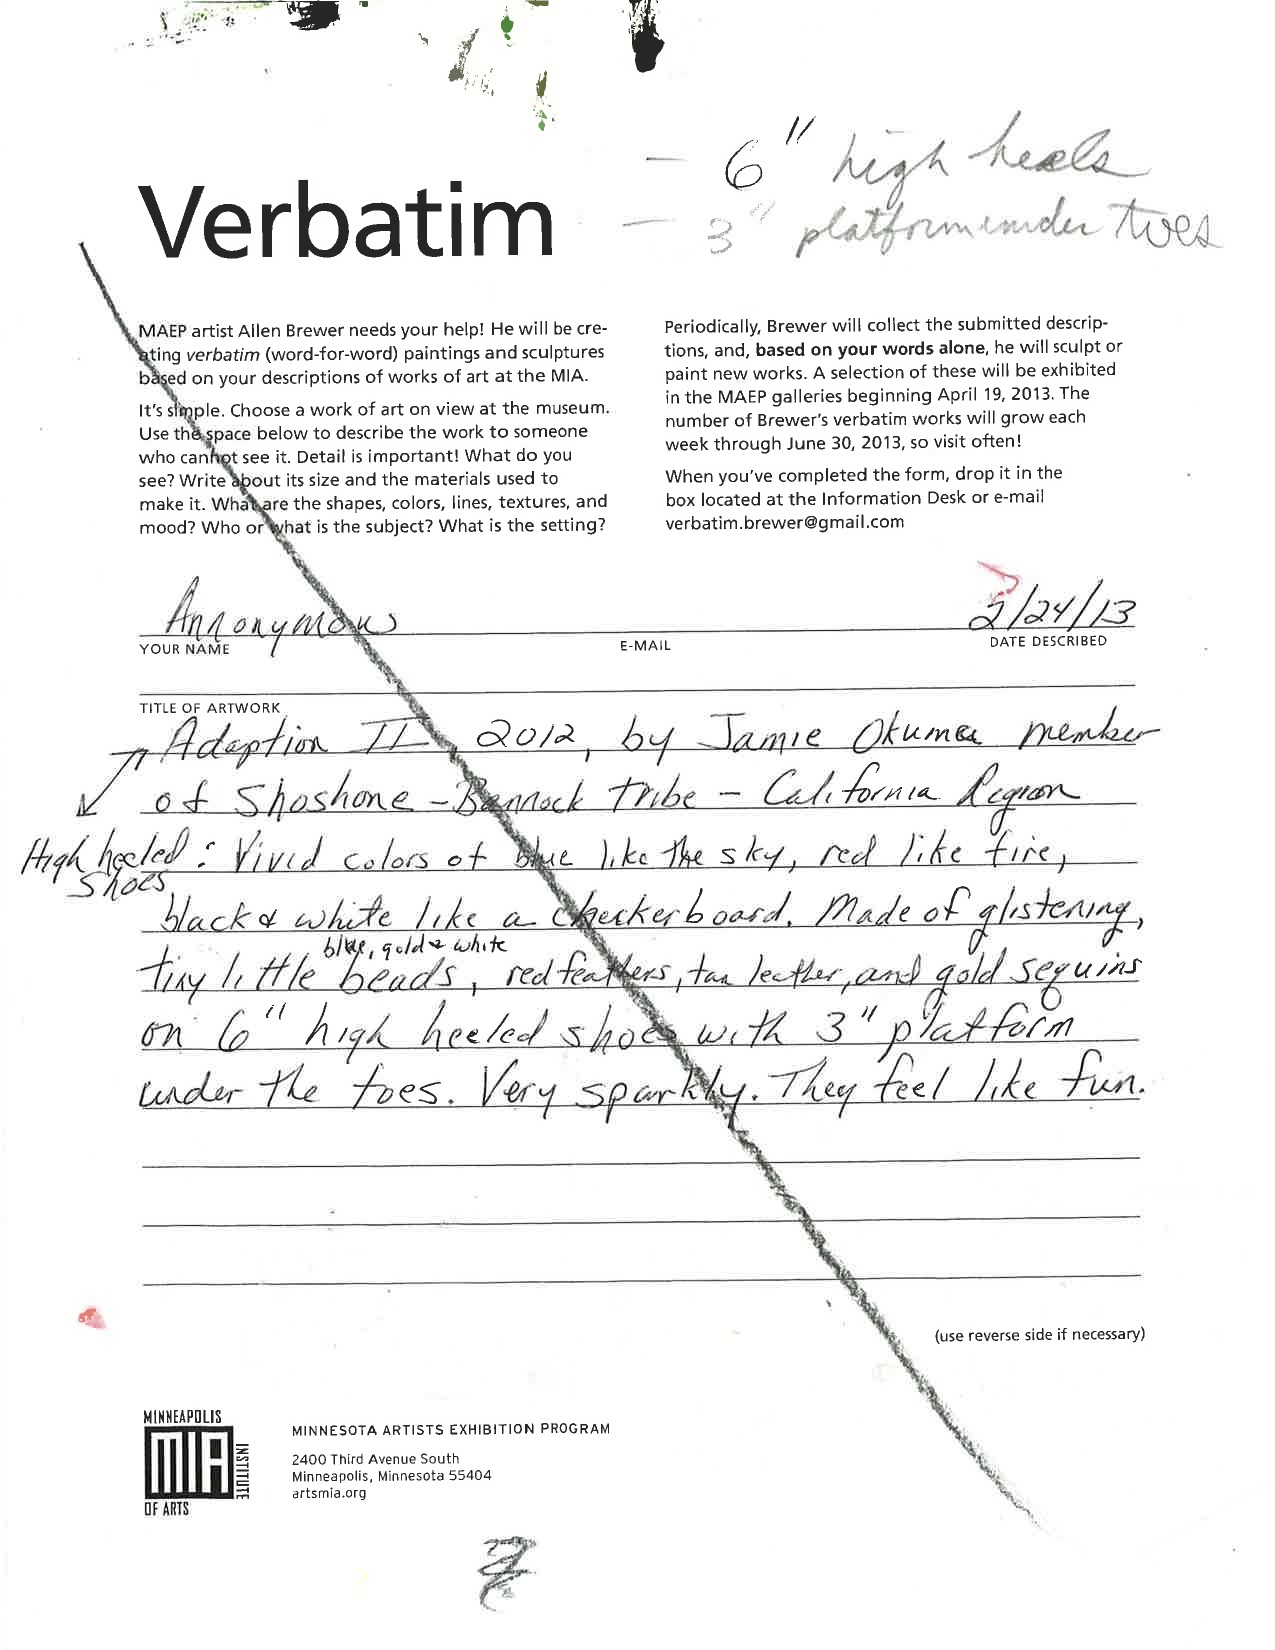 — 6" high heels
— 3" platform under toes
Verbatim
MAEP artist Allen Brewer needs your help! He will be cre-
ating verbatim (word-for-word) paintings and sculptures
based on your descriptions of works of art at the MIA.
It's simple. Choose a work of art on view at the museum.
Use the space below to describe the work to someone
who cannot see it. Detail is important! What do you
see? Write about its size and the materials used to
make it. What are the shapes, colors, lines, textures, and
mood? Who or what is the subject? What is the setting?
Periodically, Brewer will collect the submitted descrip-
tions, and, based on your words alone, he will sculpt or
paint new works. A selection of these will be exhibited
in the MAEP galleries beginning April 19, 2013. The
number of Brewer's verbatim works will grow each
week through June 30, 2013, so visit often!
When you've completed the form, drop it in the
box located at the Information Desk or e-mail
verbatim.brewer@gmail.com
Annonymous 2/24/13
YOUR NAME E-MAIL DATE DESCRIBED
TITLE OF ARTWORK
Adaption II, 2012, by Jamie Okuma member
of Shoshone - Bannock Tribe - California Region
High heeled shoes : Vivid colors of blue like the sky, red like fire,
black & white like a checkerboard. Made of glistening,
blue, gold & white
tiny little beads, red feathers, tan leather, and gold sequins
on 6" high heeled shoes with 3" platform
under the toes. Very sparkly. They feel like fun.
(use reverse side if necessary)
MINNEAPOLIS
MIA
INSTITUTE
OF ARTS
MINNESOTA ARTISTS EXHIBITION PROGRAM
2400 Third Avenue South
Minneapolis, Minnesota 55404
artsmia.org